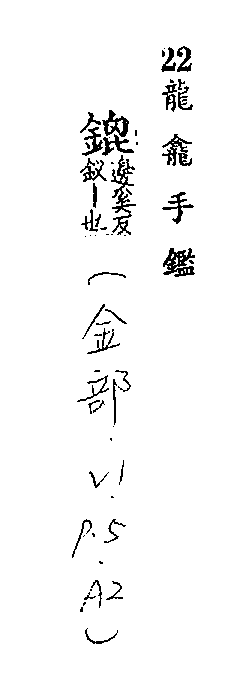 22龍龕手鑑
鎞邊奚反釵丨也(金部.V1.P.5.A2)